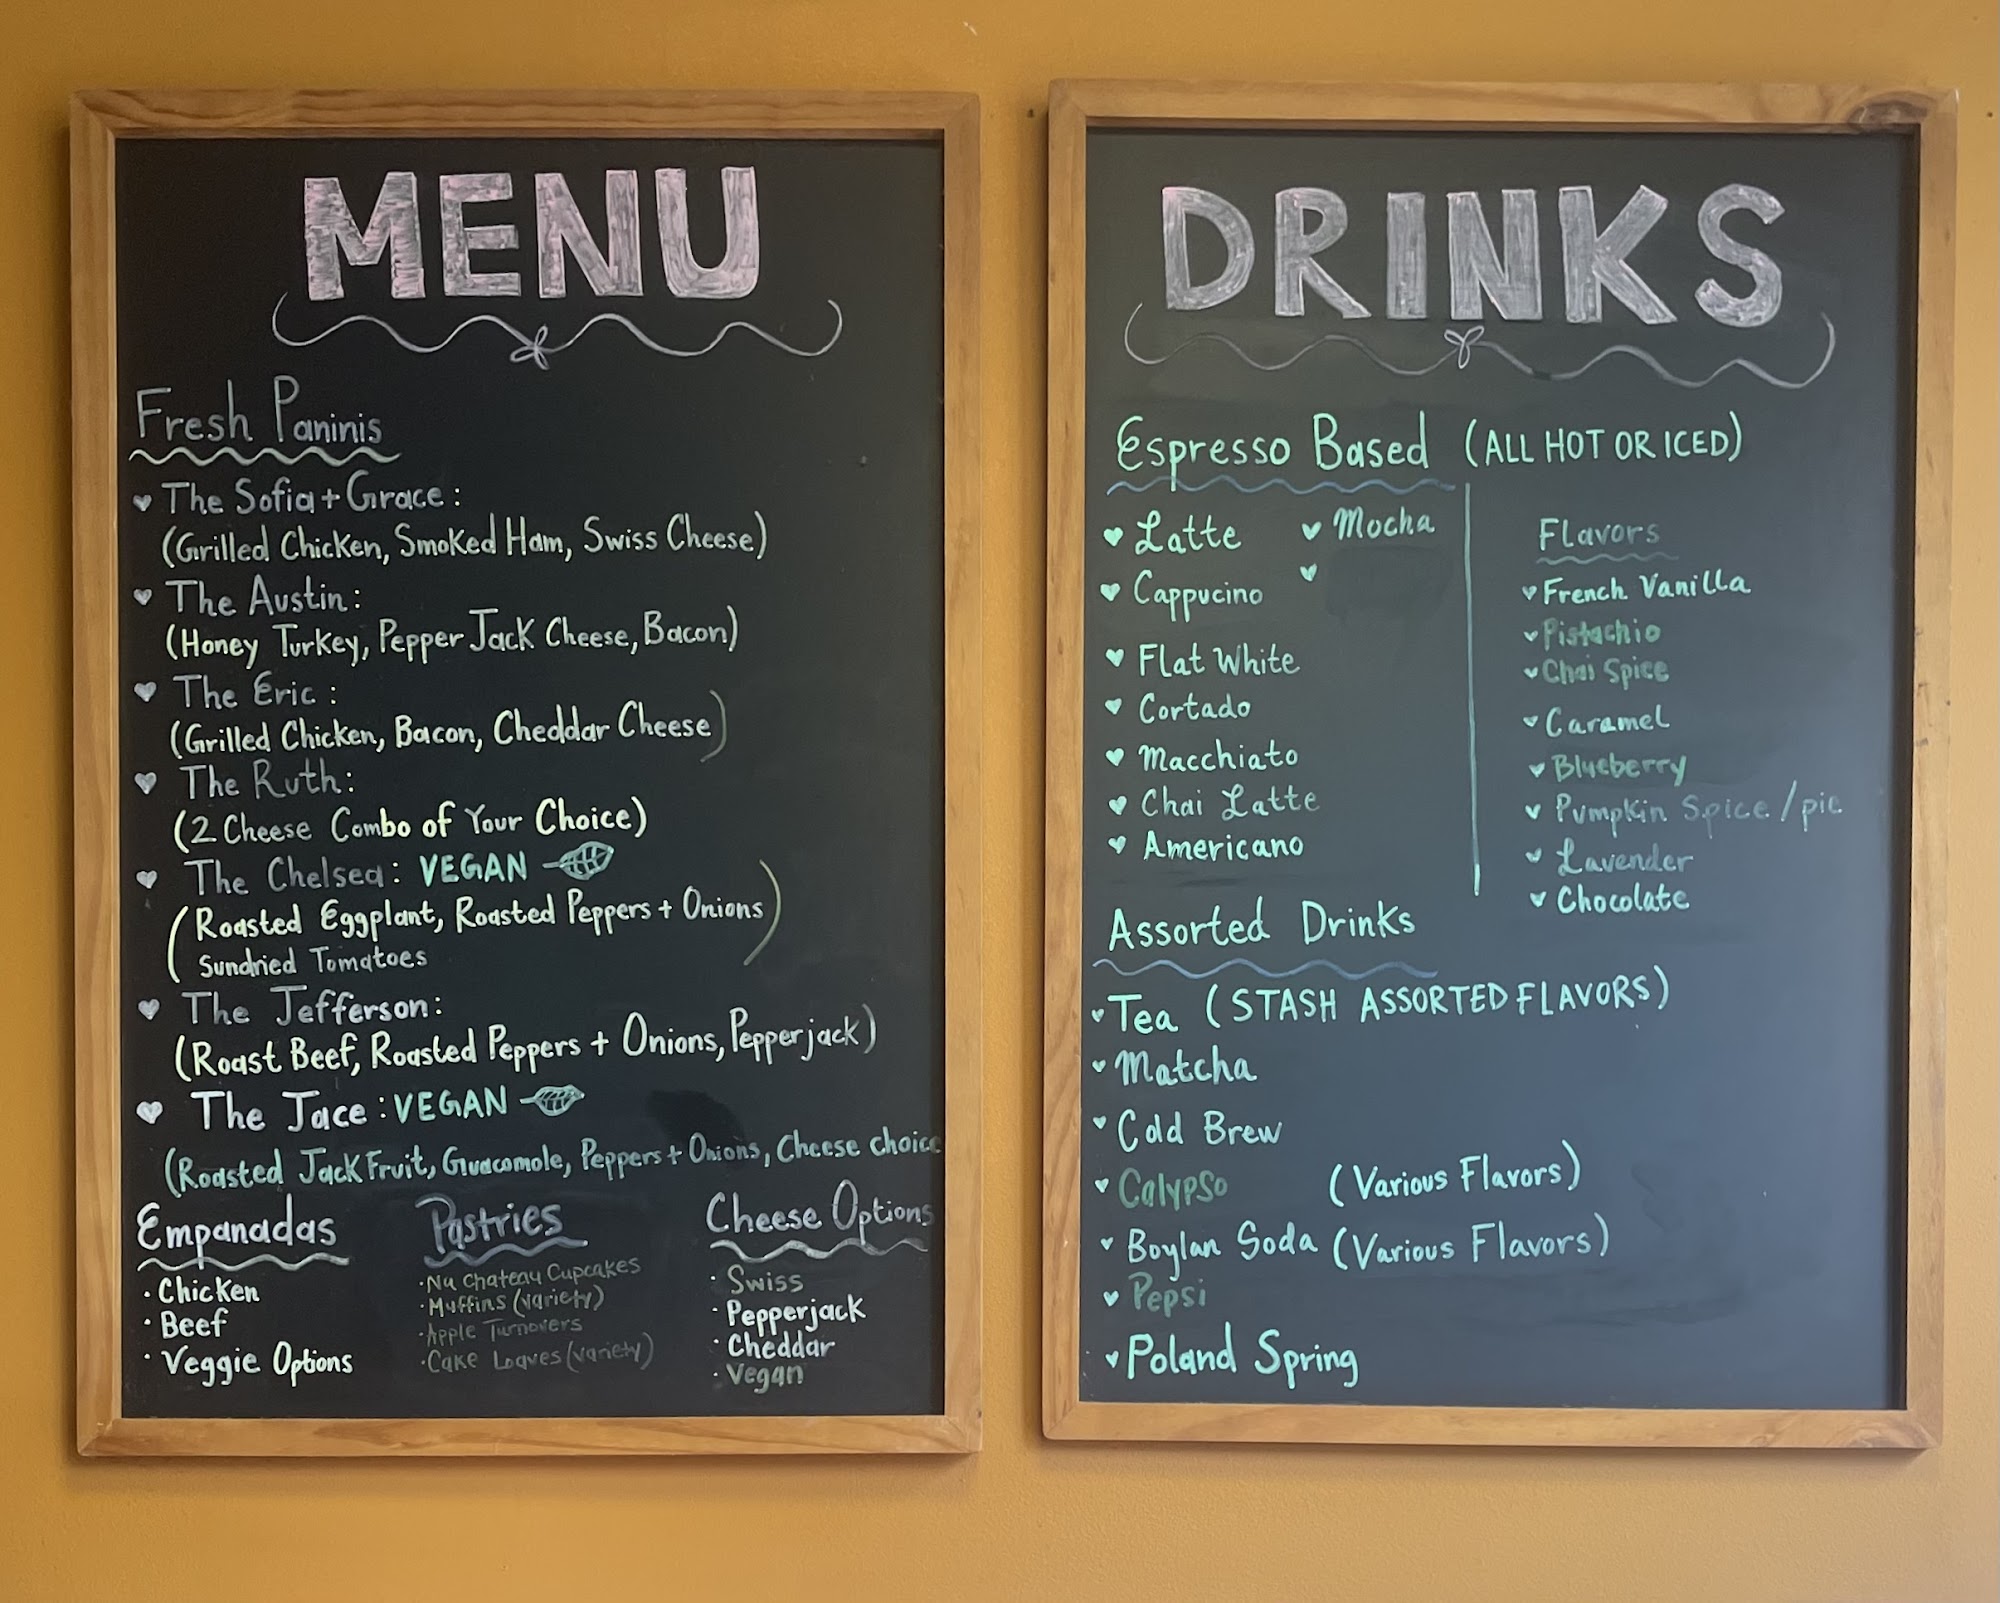 MENU
Fresh Paninis
The Sofia + Grace:
(Grilled Chicken, Smoked Ham, Swiss Cheese)
The Austin:
(Honey Turkey, Pepper Jack Cheese, Bacon)
The Eric:
(Grilled Chicken, Bacon, Cheddar Cheese)
The Ruth:
(2 Cheese Combo of Your Choice)
The Chelsea: VEGAN
(Roasted Eggplant, Roasted Peppers + Onions
Sundried Tomatoes)
The Jefferson:
(Roast Beef, Roasted Peppers + Onions, Pepperjack)
The Jace: VEGAN
(Roasted JackFruit, Guacomole, Peppers + Onions, Cheese choice
Empanadas
· Chicken
· Beef
· Veggie Options
Pastries
· Nu Chateau Cupcakes
· Muffins (variety)
· Apple Turnovers
· Cake Loaves (variety)
Cheese Options
· Swiss
· Pepperjack
· Cheddar
· Vegan
DRINKS
Espresso Based (ALL HOT OR ICED)
Latte
Cappucino
Flat White
Cortado
Macchiato
Chai Latte
Americano
Mocha
Flavors
French Vanilla
Pistachio
Chai Spice
Caramel
Blueberry
Pumpkin Spice / pie
Lavender
Chocolate
Assorted Drinks
Tea (STASH ASSORTED FLAVORS)
Matcha
Cold Brew
Calypso (Various Flavors)
Boylan Soda (Various Flavors)
Pepsi
Poland Spring